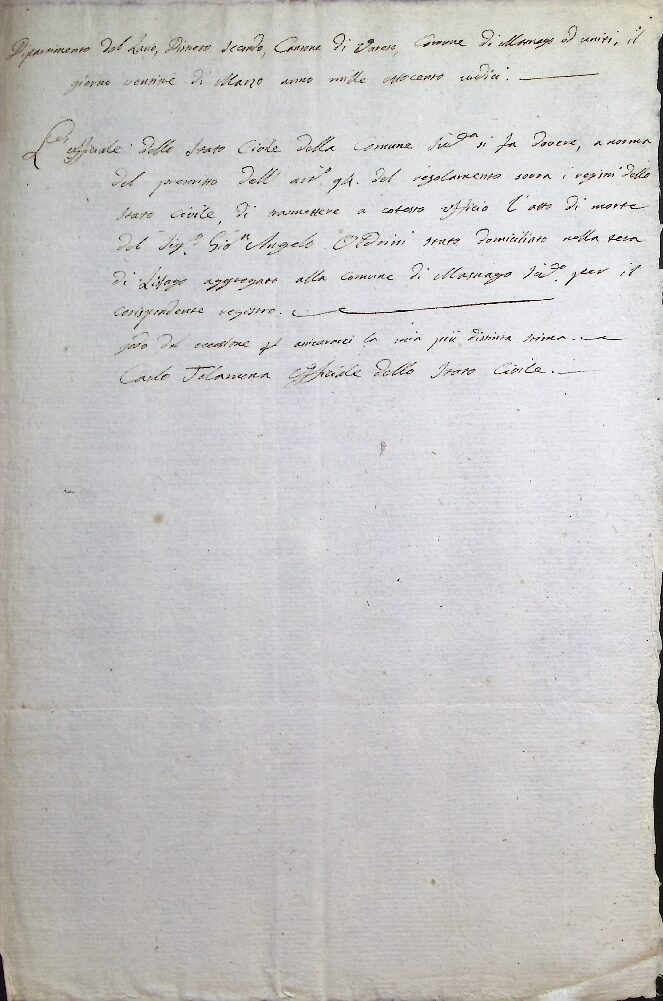 Dipartimento del Lario, Distreto Secondo, Cantone di Varese, Comune di Masnago ed uniti, il
giorno ventitre di Marzo anno mille ottocento undici.
L'ufficiale dello Stato Civile della Comune Sudo si fa dovere, a norma
del premitto dell' arto 94. del regolamento sovra i registri dello
Stato Civile di tramettere a cotesto ufficio l'atto di morte
del Sigr Gion Angelo Oldoini stato domiciliato nella terra
di Lissago aggregato alla Comune di Masnago Sudo. per il
corispondente registro.
godo de occasione assicurarci la mia più distinta stima.
Carlo Talamona Officiale dello Stato Civile.